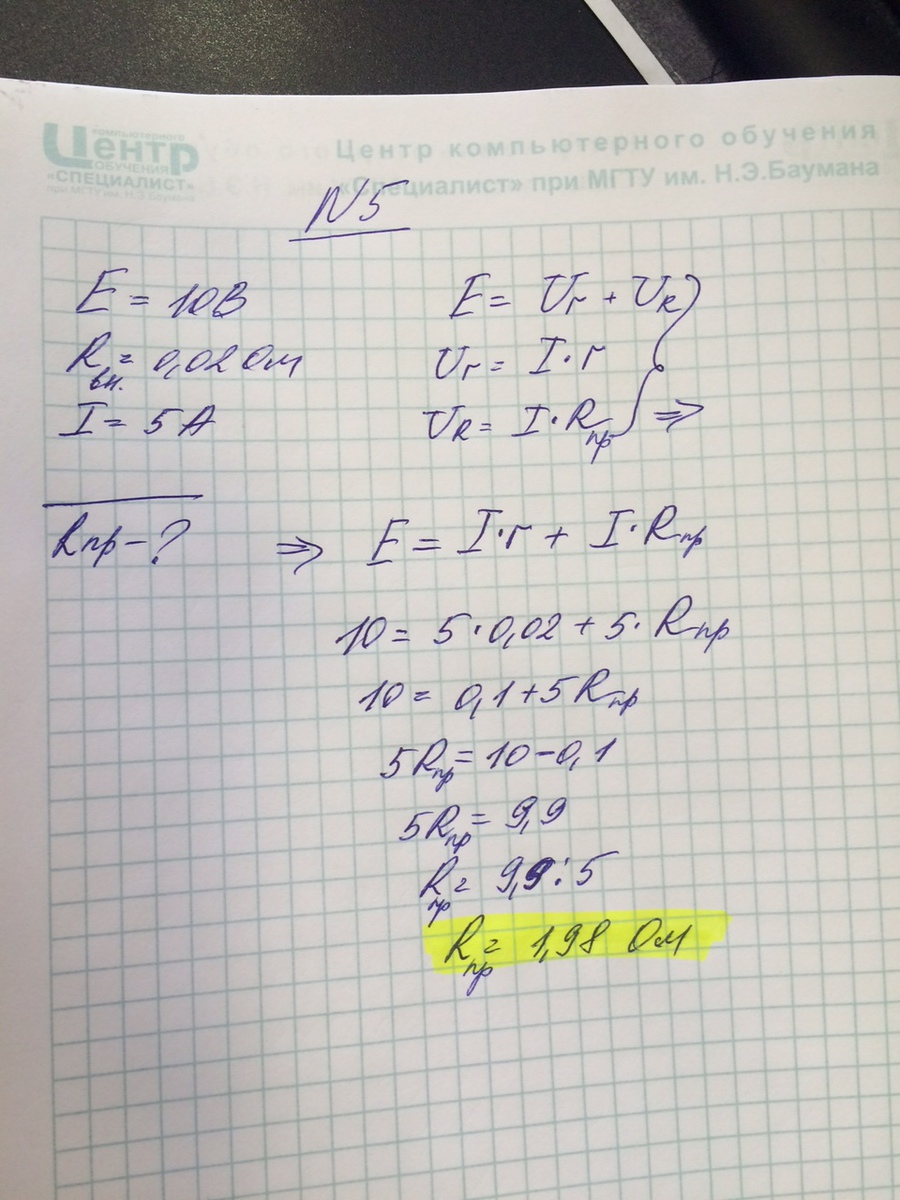 компьютерного
Центр
ОБУЧЕНИЯ
«СПЕЦИАЛИСТ»
при МГТУ им. Н.Э. Баумана
Центр компьютерного обучения
«Специалист» при МГТУ им. Н.Э.Баумана
N5
E = 10В
Rвн. = 0,02 Ом
I = 5 А
Rпр - ?
E = Ur + UR
Ur = I · r
UR = I · Rпр ⇒
⇒ E = I · r + I · Rпр
10 = 5 · 0,02 + 5 · Rпр
10 = 0,1 + 5 Rпр
5Rпр = 10 - 0,1
5Rпр = 9,9
Rпр = 9,9 : 5
Rпр = 1,98 Ом